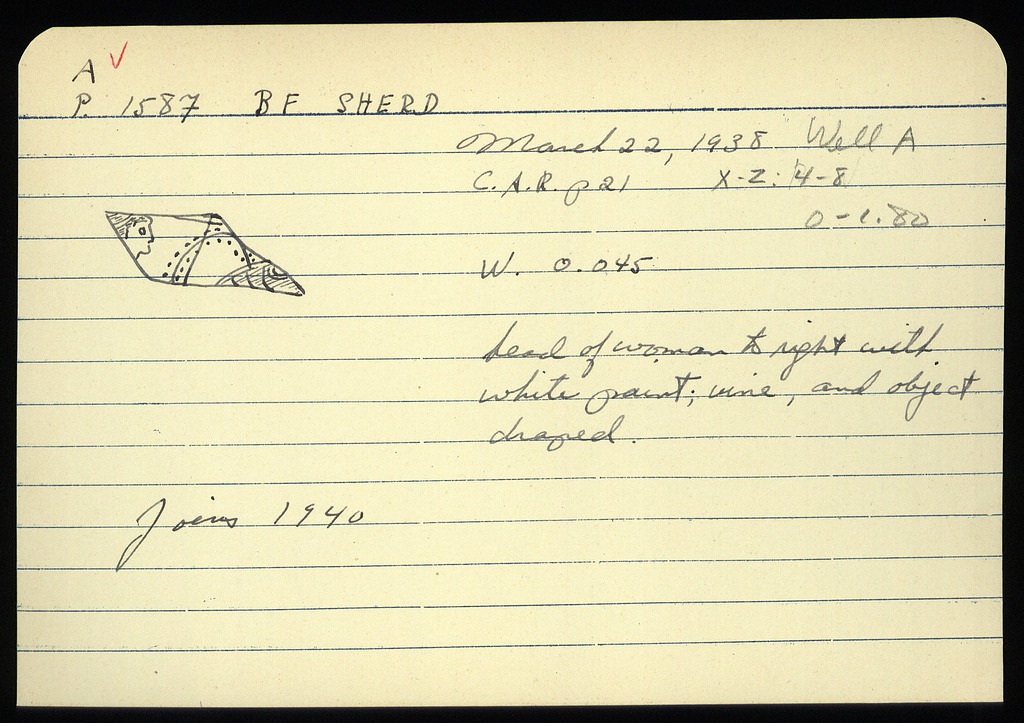 A ✓
P. 1587 BF SHERD
March 22, 1938 Well A
C.A.R. p 21 X-Z: 4-8
0-1.80
W. 0.045
head of woman to right with
white paint; vine, and object
draped.
Joins 1940